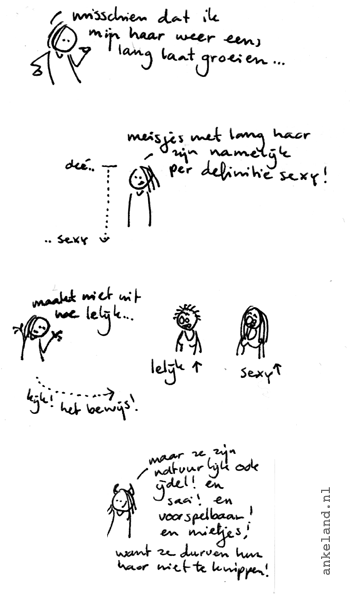 misschien dat ik
mijn haar weer eens
lang laat groeien...
meisjes met lang haar
zijn namelijk
per definitie sexy!
deé..
.. sexy
maakt niet uit
hoe lelijk...
lelijk ↑
sexy ↑
kijk! het bewijs!
maar ze zijn
natuurlijk ook
ijdel! én
saai! en
voorspelbaar!
en mietjes!
want ze durven hun
haar niet te knippen!
ankeland.nl